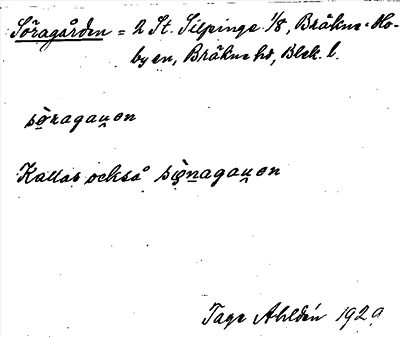 Söragården = 2 St. Silpinge 1/8, Bräkne-Ho-
byen, Bräkne hd, Blek. l.
sö̀ragau̯ən
Kallas också sö̀nagau̯ən
Tage Ahldén 1929